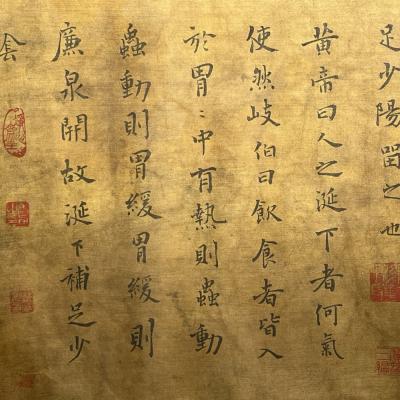 足少陽畱之也
黃帝曰人之涎下者何氣
使然岐伯曰飲食者皆入
於胃〻中有熱則蟲動
蟲動則胃緩胃緩則
廉泉開故涎下補足少